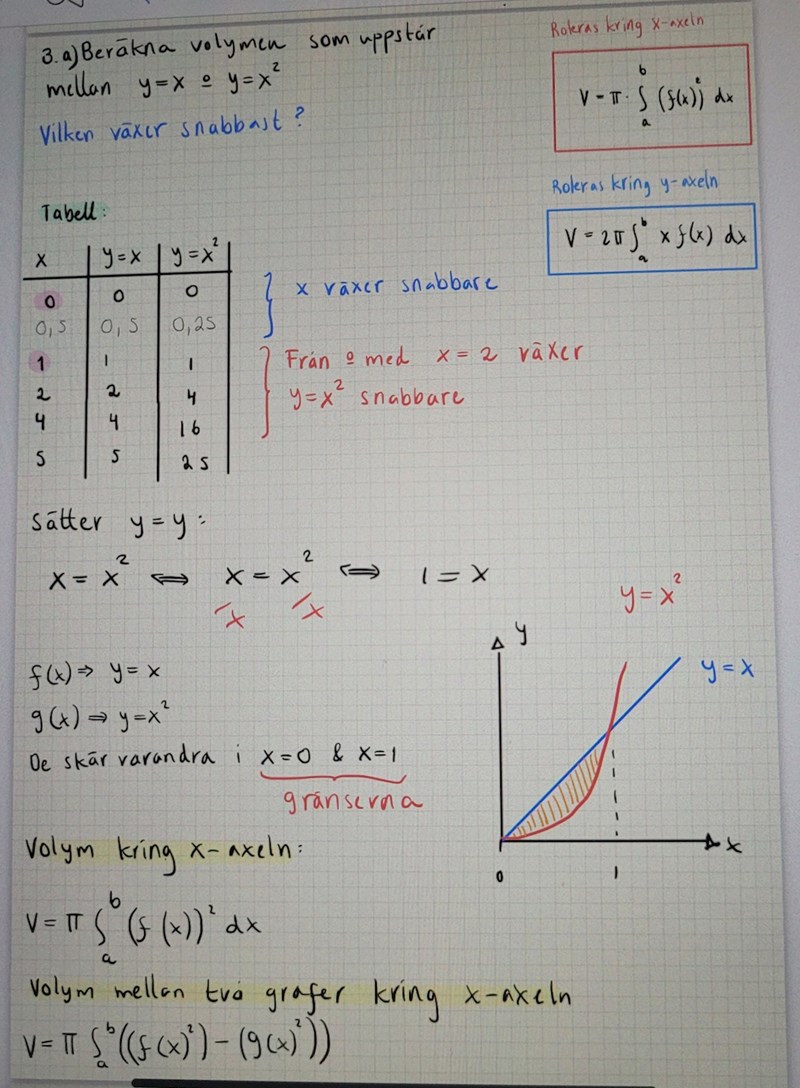 3. a) Beräkna volymen som uppstår
mellan y=x o y=x²
Vilken växer snabbast?
Roteras kring x-axeln
V = π · ∫ₐᵇ (f(x))² dx
Roteras kring y-axeln
V = 2π ∫ₐᵇ x f(x) dx
Tabell:
x | y=x | y=x²
0 | 0 | 0
0,5 | 0,5 | 0,25
1 | 1 | 1
2 | 2 | 4
4 | 4 | 16
5 | 5 | 25
x växer snabbare
Från o med x = 2 växer
y=x² snabbare
Sätter y = y:
x = x² ⟺ x = x² ⟺ 1 = x
/x /x
f(x) ⇒ y = x
g(x) ⇒ y = x²
De skär varandra i x=0 & x=1
gränserna
y = x²
y = x
y
x
0
1
Volym kring x-axeln:
V = π ∫ₐᵇ (f(x))² dx
Volym mellan två grafer kring x-axeln
V = π ∫ₐᵇ ((f(x)²) - (g(x)²))